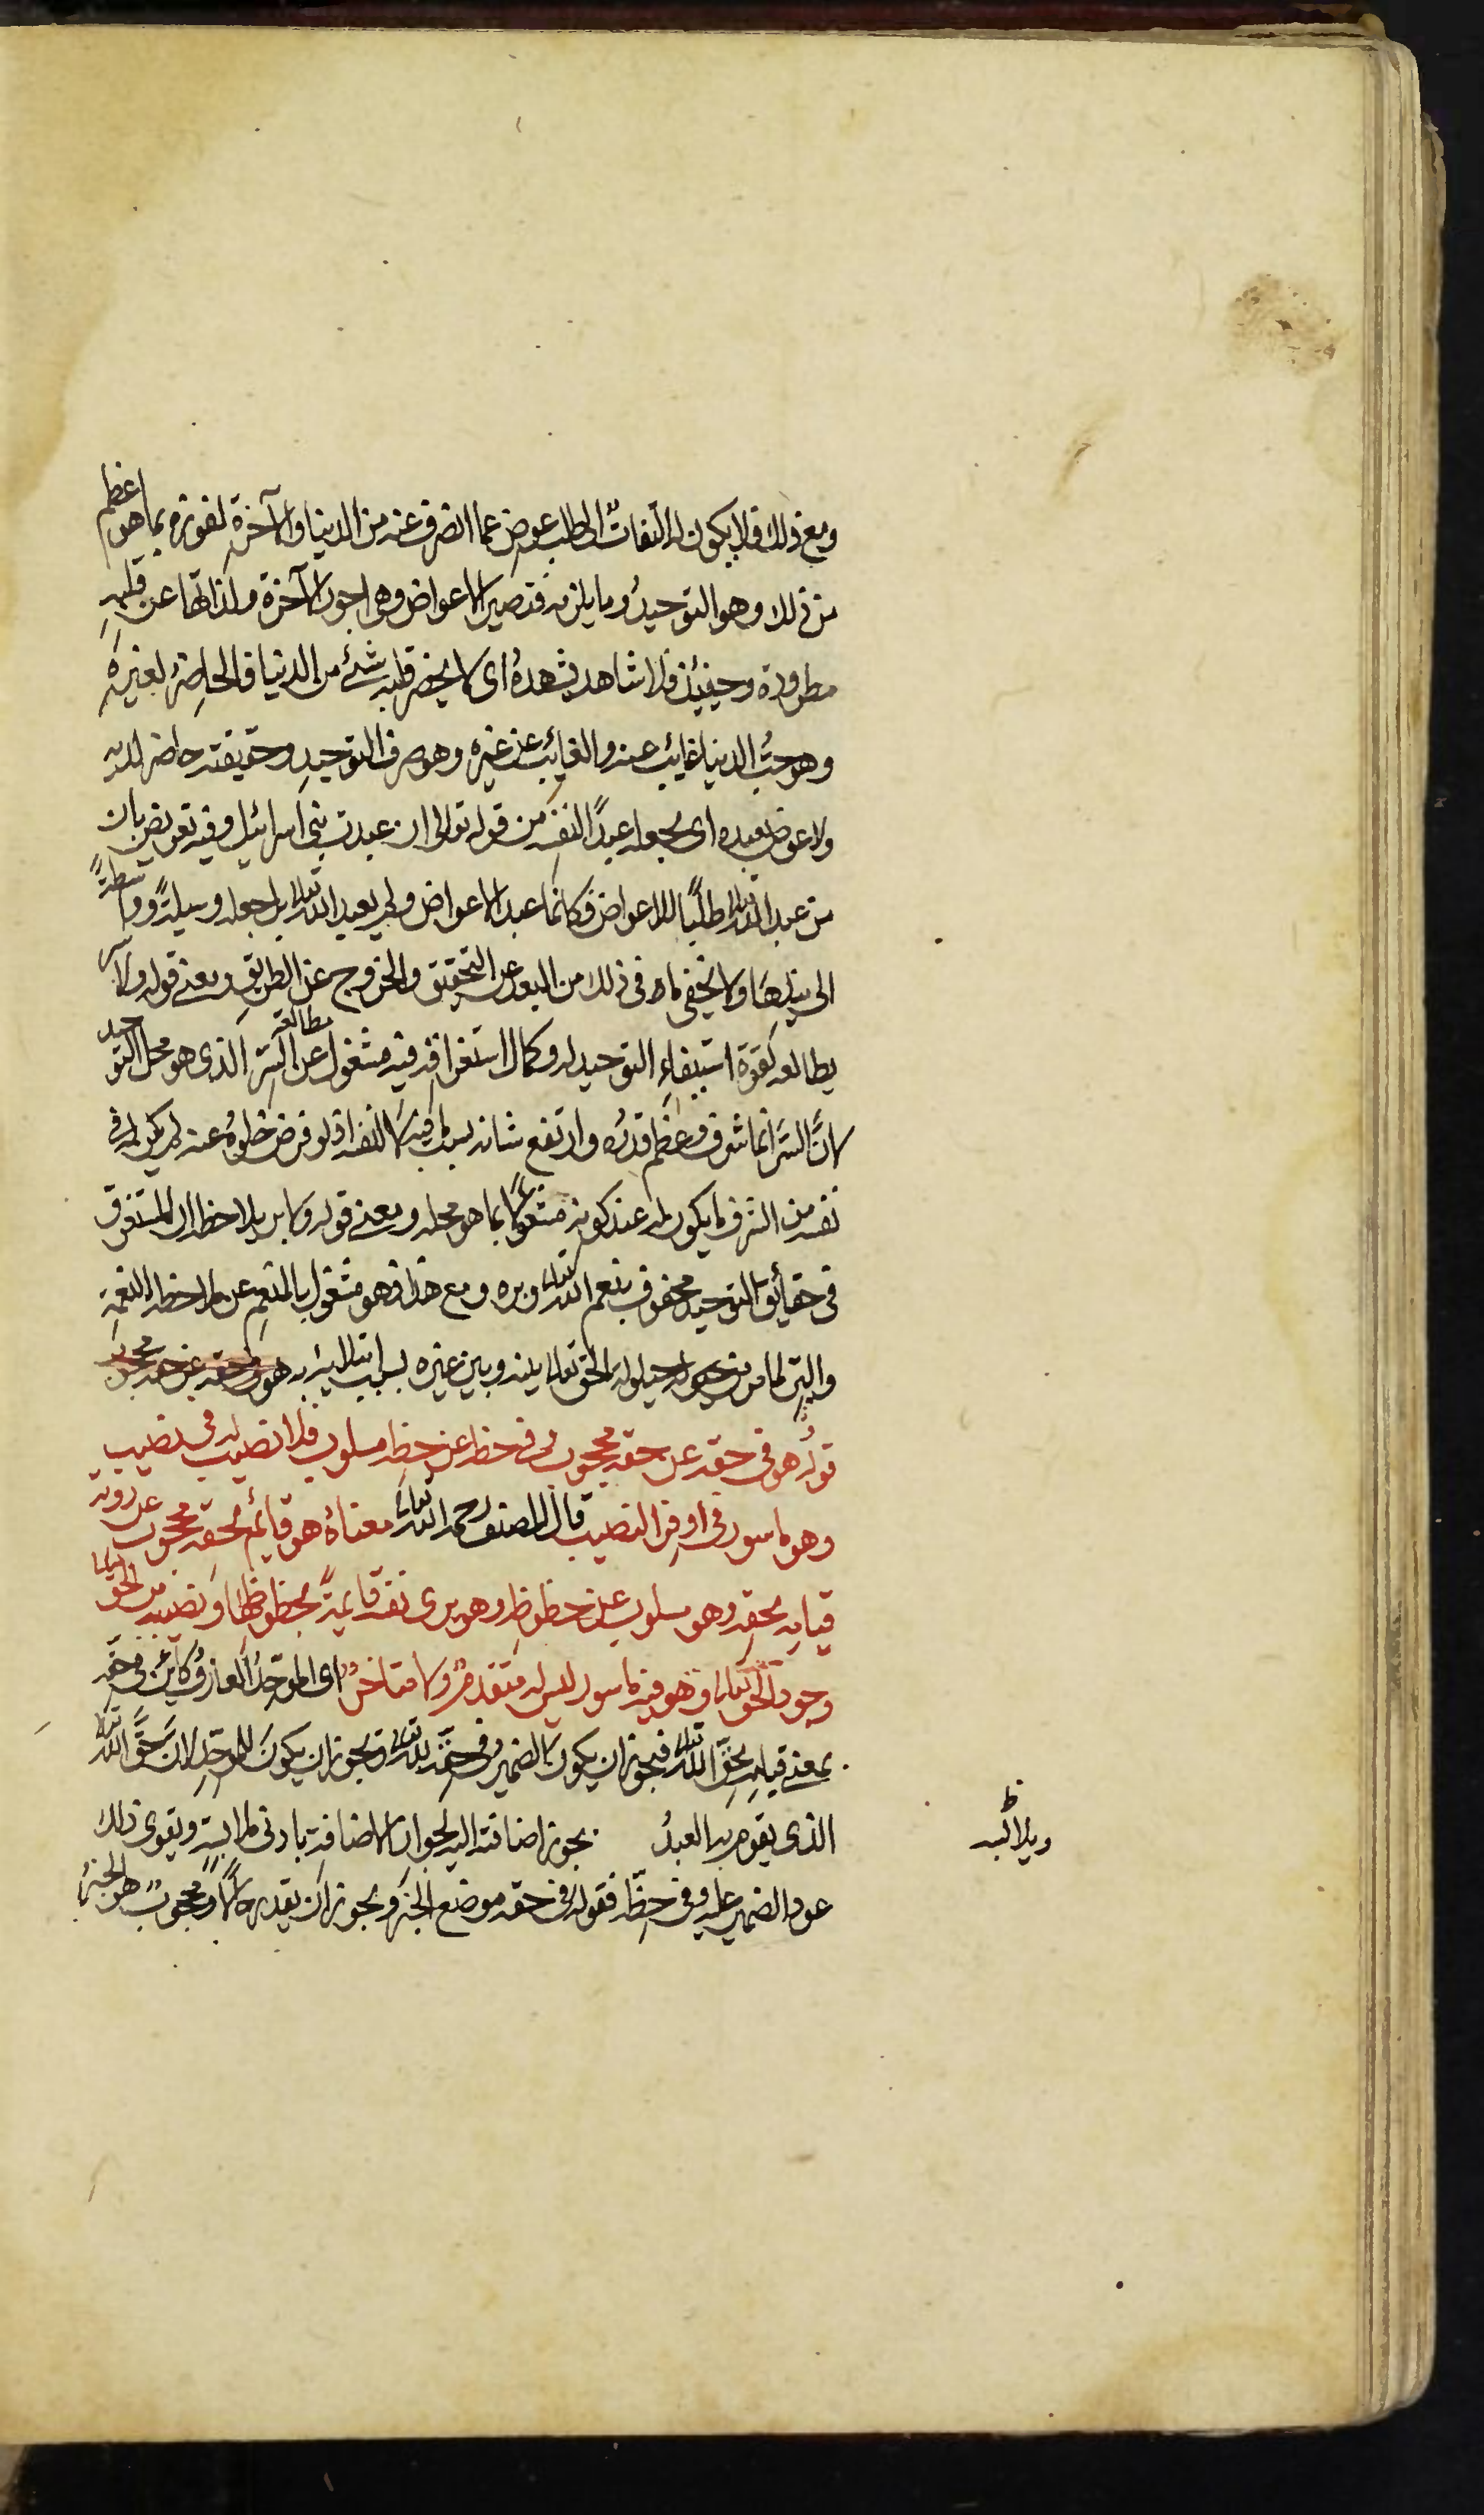 ومع ذلك فلا يكون له التفاتٌ الى طلب عوض عما انصرف عنه من الدنيا والآخرة لفوزه بما هو اعظم
من ذلك وهو التوحيدُ وما يلزمه فتصير الاعواض وهى اجور الآخرة ولذاتها عن قلبهِ
مطرودة وحينئذ فلا شاهد يشهدهُ اى لا يحضر قلبه شئ من الدنيا فالحاضرُ لغيرهِ
وهو حبُّ الدنيا غائبٌ عنه والغائب عن غيره وهو صرف التوحيدِ وحقيقته حاضر لديه
ولا عوض يعبده اى يجعله عبدًا لنفسه من قوله تعالى ان عبدت بنى اسرائيل وفيه تعريض بان
من عبد الله تعالى طلبًا للاعواض فكانما عبد الاعواض ولم يعبد الله تعالى بل جعله وسيلةً وواسطةً
الى نيلها ولا يخفى ما فى ذلك من البعد عن التحقيق والخروج عن الطريق ومعنى قوله ولا سر
يطالعه لقوة استيفاءِ التوحيد له وكمال استغراقه فيه مشغول عن مطالعة السّر الذى هو محل التوحيد
لانَّ السّرَ انما شرف وعظم قدره وارتفع شانه بسبب ما فيه لا لنفسه اذ لو فرض خلوّهُ عنه لم يكن له فى
نفسه من الشرف ما يكون له عند كونه مشغولاً بما هو محله ومعنى قوله ولا بر يلاحظه ان المستغرق
فى حقائق التوحيد محفوف بنعم الله تعالى وبره ومع هذا فهو مشغول بالمنعم عن ملاحظة النعمة
والبِّر لما مر من حيلولة الحق تعالى بينه وبين غيره بسبب
قولُه هو فى حقه عن حقه محجوب وفى حظه عن حظه مسلوب فلا نصيب له فى نصيب
وهو ماسور فى اوفر النصيب قال المصنف رحمه الله تعالى معناهُ هو قائم بحقه محجوب عن رؤية
قيامه بحقه وهو مسلوب عن حظوظه وهو يرى نفسه قايمةً بحظوظها ونصيبه من الحق تعالى
وجود الحق تعالى وهو فيه ماسور ليس له متقدمٌ ولا متاخرٌ اى الموحّدُ العارفُ كائن فى حقه
بمعنى قيامه بحقِّ الله تعالى فيجوز ان يكون الضميرُ فى حقه لله تعالى ويجوز ان يكون للموحّدِ لان حقَّ الله تعالى
الذى يقوم به العبدُ يجوز اضافته اليه لجواز الاضافة بادنى ملابسة ويقوى ذلك
عود الضمير عليه فى حظّه فقوله فى حقه موضع الخبر ويجوز ان يقدر حالاً ومحجوبٌ هو الخبرُ